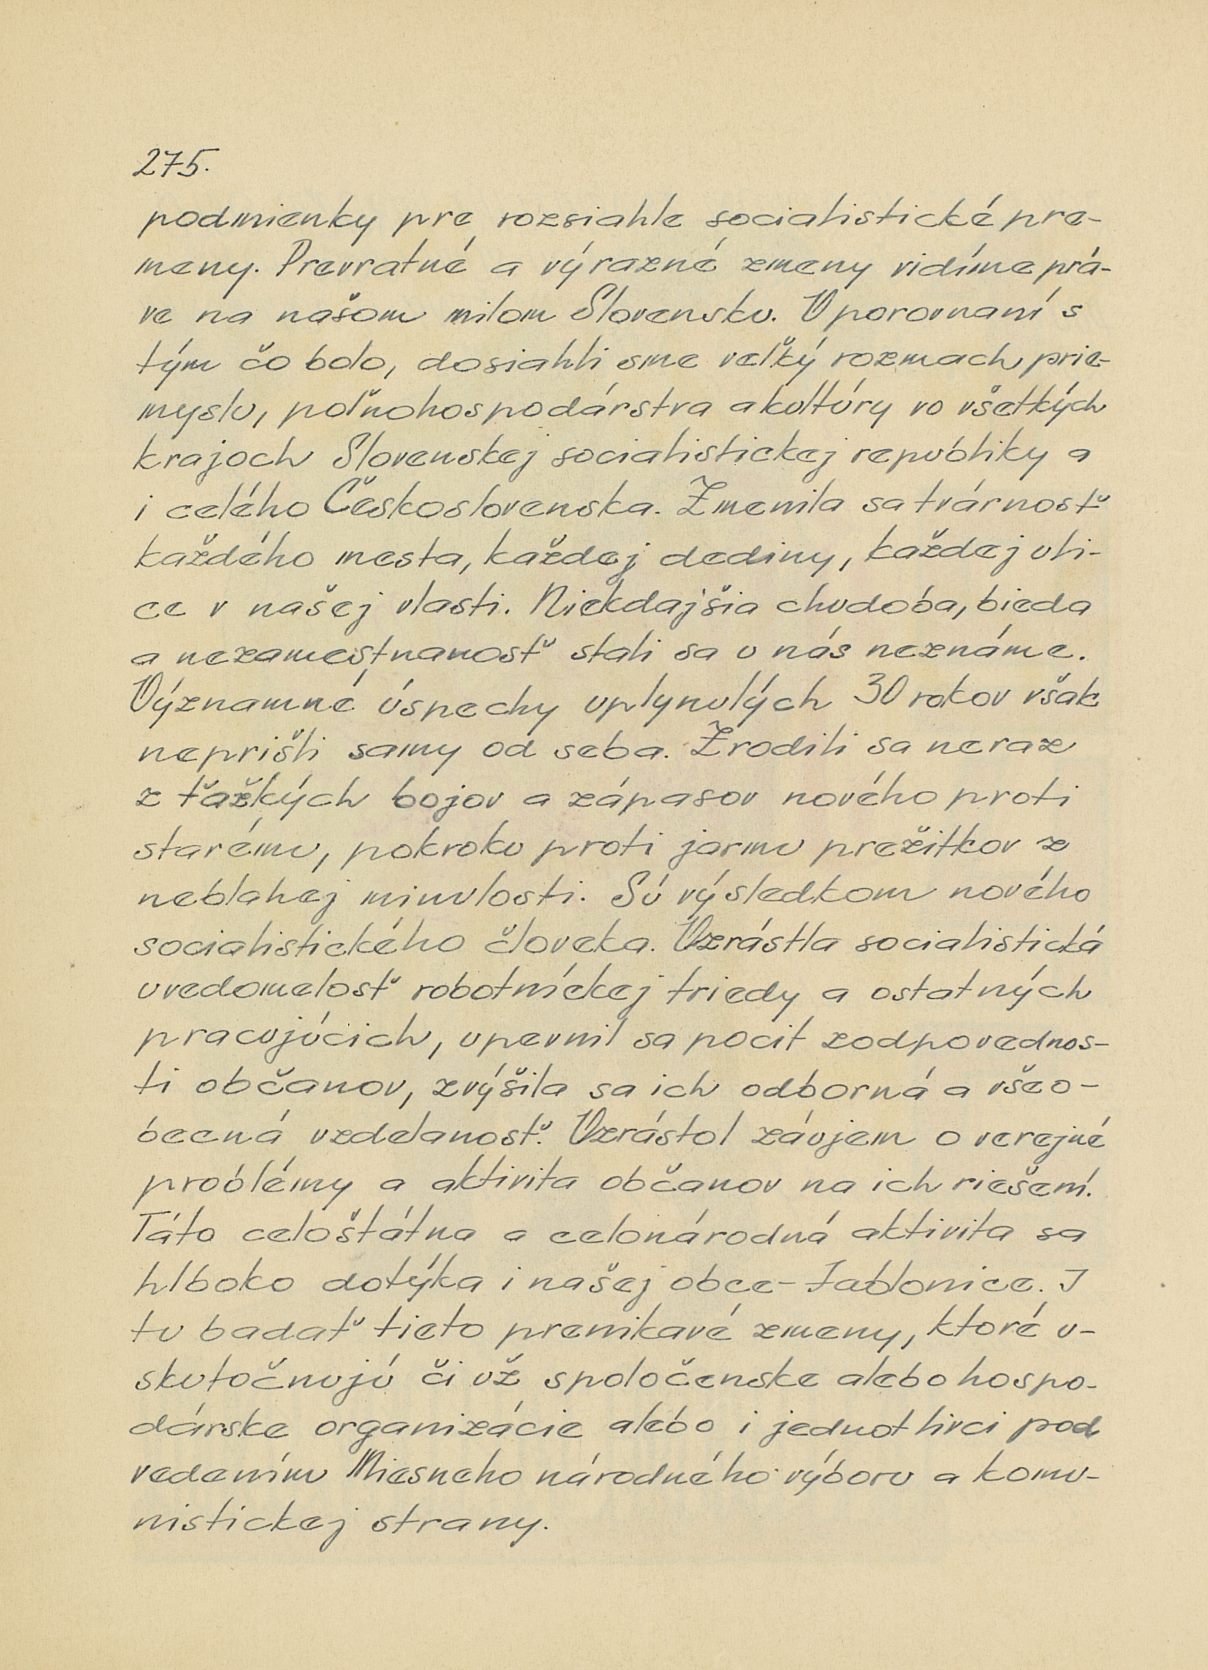 275.
podmienky pre rozsiahle socialistické pre-
meny. Prevratné a výrazné zmeny vidíme prá-
ve na našom milom Slovensku. V porovnaní s
tým čo bolo, dosiahli sme veľký rozmach prie-
myslu, poľnohospodárstva a kultúry vo všetkých
krajoch Slovenskej socialistickej republiky a
i celého Československa. Zmenila sa tvárnosť
každého mesta, každej dediny, každej uli-
ce v našej vlasti. Niekdajšia chudoba, bieda
a nezamestnanosť stali sa u nás neznáme.
Významné úspechy uplynulých 30 rokov však
neprišli samy od seba. Zrodili sa neraz
z ťažkých bojov a zápasov nového proti
starému, pokroku proti jarmu prežitkov z
neblahej minulosti. Sú výsledkom nového
socialistického človeka. Vzrástla socialistická
uvedomelosť robotníckej triedy a ostatných
pracujúcich, upevnil sa pocit zodpovednos-
ti občanov, zvýšila sa ich odborná a všeo-
becná vzdelanosť. Vzrástol záujem o verejné
problémy a aktivita občanov na ich riešení.
Táto celoštátna a celonárodná aktivita sa
hlboko dotýka i našej obce - Jablonice. I
tu badať tieto prenikavé zmeny, ktoré u-
skutočnujú či už spoločenske alebo hospo-
dárske organizácie alebo i jednotlivci pod
vedením Miesneho národného výboru a komu-
nistickej strany.